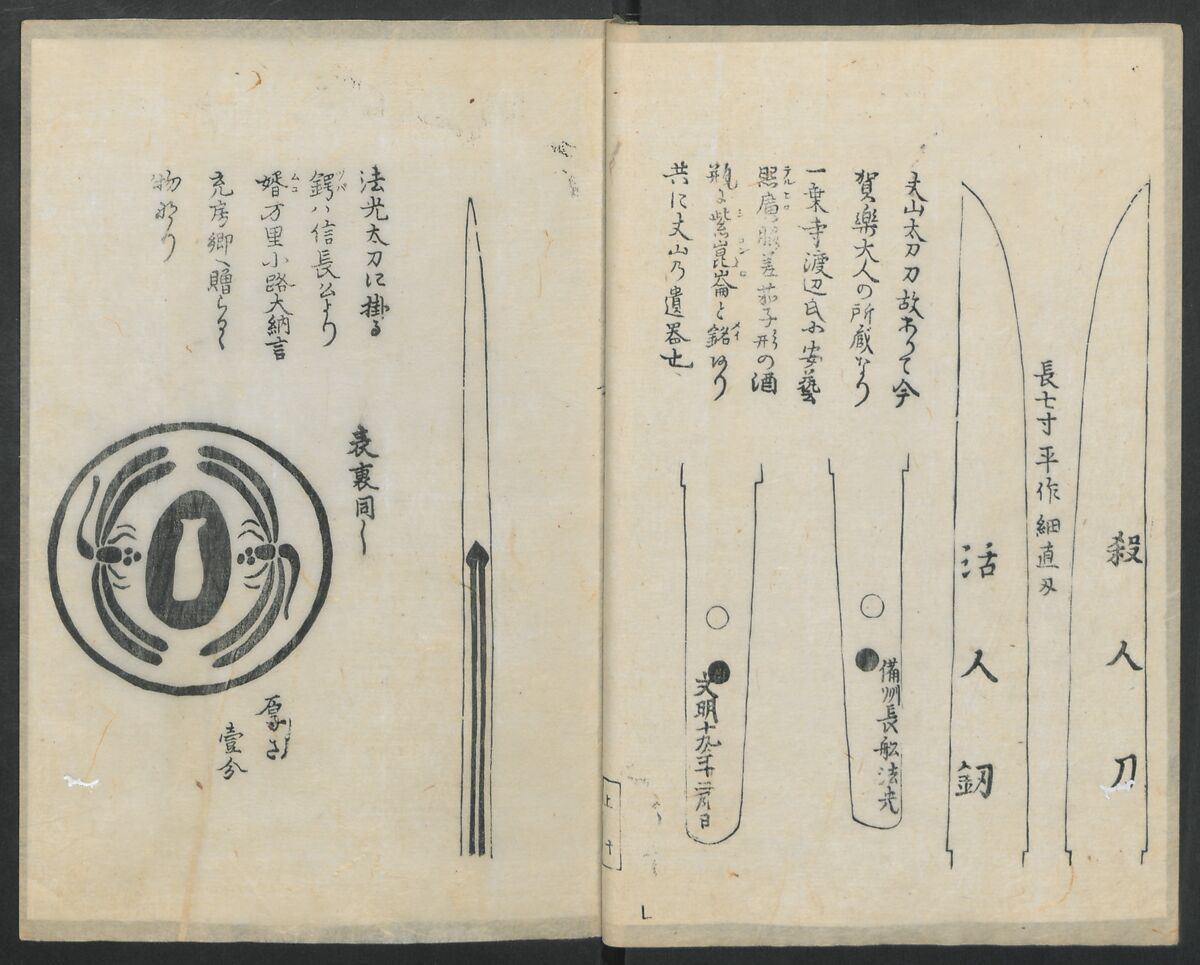 殺人刀
長七寸平作細直刃
活人釼
丈山太刀刀故ありて今
賀樂大人の所蔵なり
一乗寺渡辺氏に安藝
照廣脇差茄子形の酒
瓶に紫崑崙と銘あり
テルヒロ
シコンロ
メイ
共に丈山乃遺器也
備州長舩法光
文明十九年二月日
上 十
法光太刀に掛る
鍔ハ信長公より
ツバ
婿万里小路大納言
ムコ
充房卿へ贈らるゝ
物なり
表裏同し
厚さ
壹分